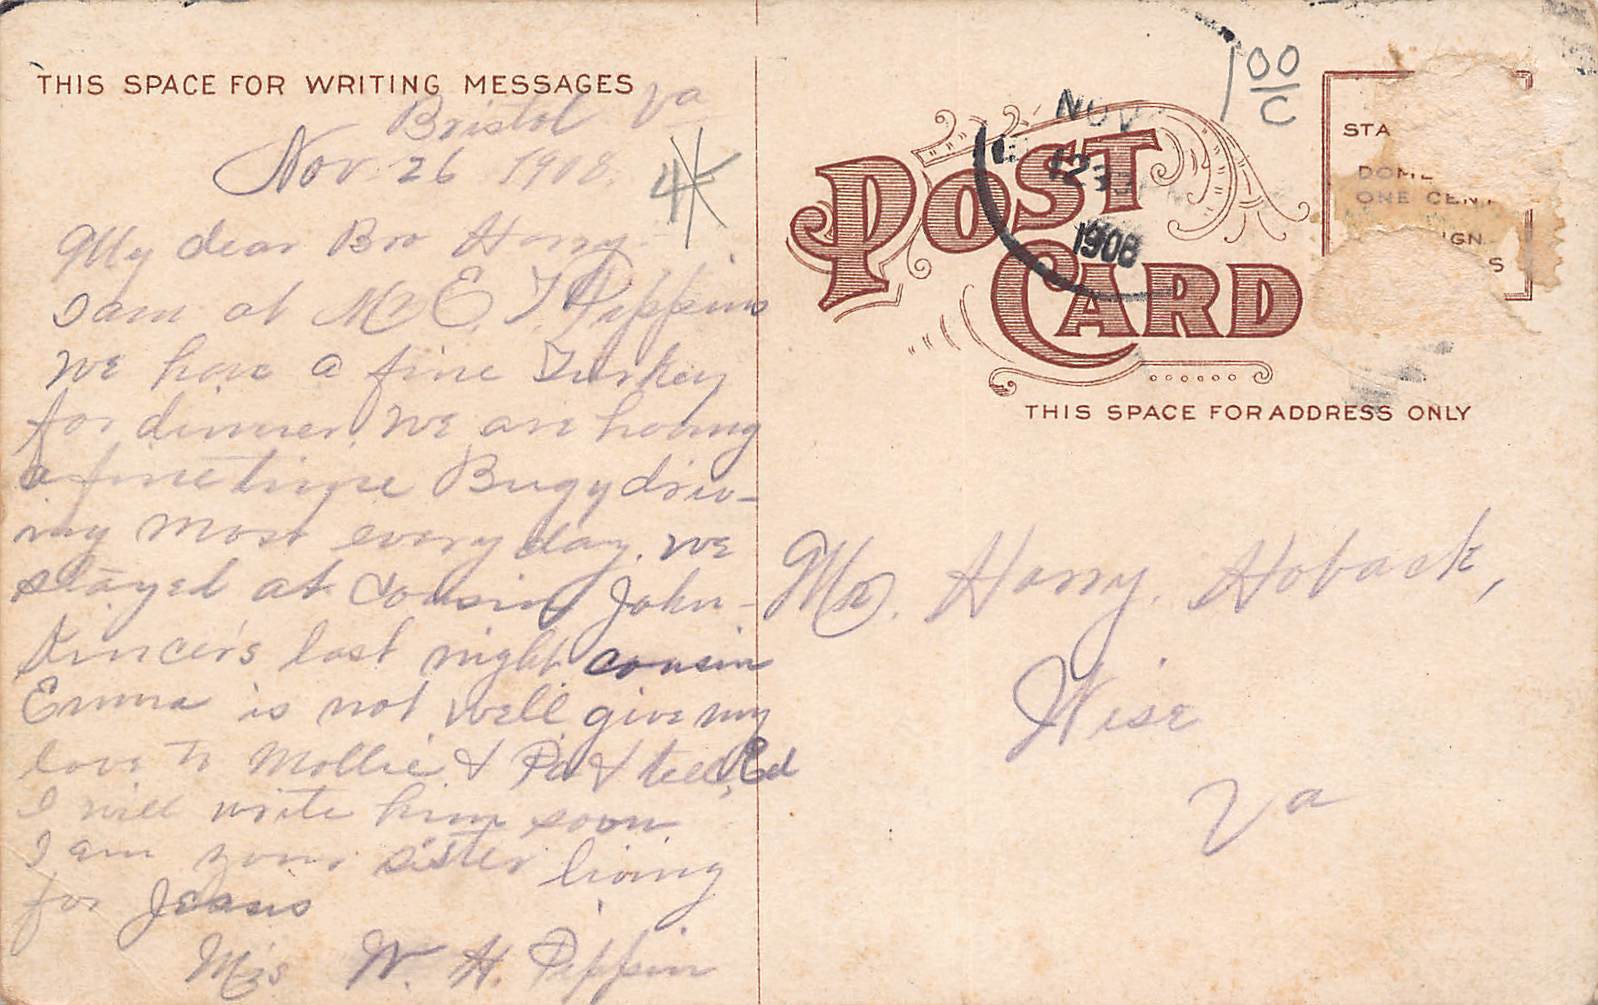 THIS SPACE FOR WRITING MESSAGES
Bristol Va
Nov. 26 1908.
My dear Bro Harry
I am at Mr E. T. Pippins
we have a fine Turkey
for dinner. we are having
a fine time Bugy driv-
ing most every day. we
stayed at Cousin John
Vincer's last night cousin
Emma is not well give my
love to Mollie & Pa & tell Ed
I will write him soon
I am your sister living
for Jesus
Mrs W. H. Pippin
1 00
C
NOV
1230
1908
POST
CARD
STA
DOME
ONE CENT
IGN
S
THIS SPACE FOR ADDRESS ONLY
Mr. Harry. Hoback,
Wise
Va